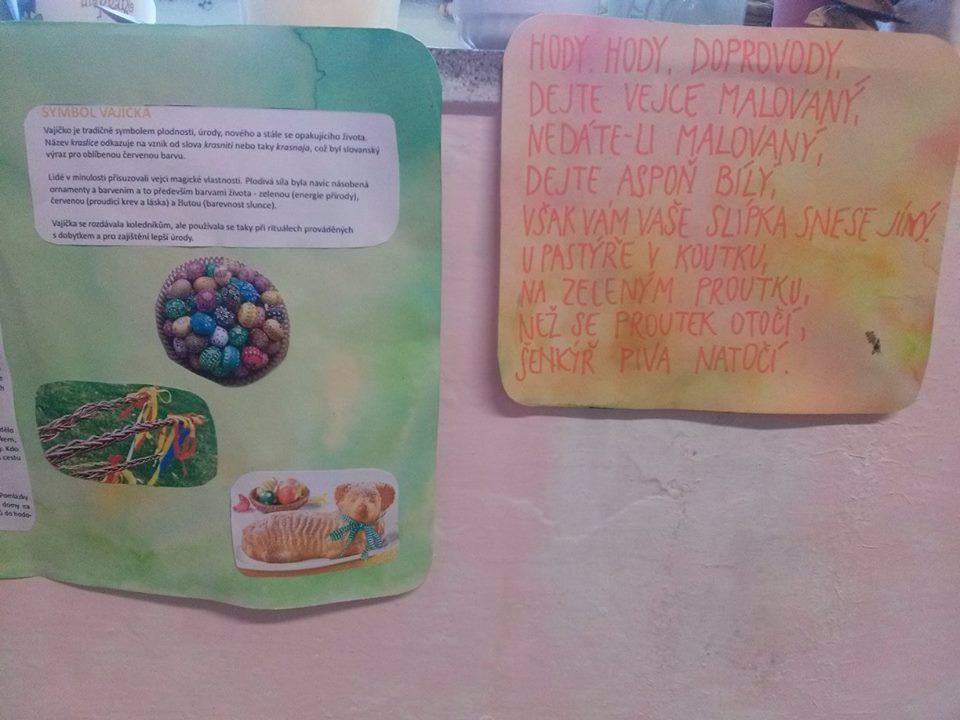 SYMBOL VAJÍČKA
Vajíčko je tradičně symbolem plodnosti, úrody, nového a stále se opakujícího života.
Název kraslice odkazuje na vznik od slova krasniti nebo taky krasnaja, což byl slovanský
výraz pro oblíbenou červenou barvu.
Lidé v minulosti přisuzovali vejci magické vlastnosti. Plodivá síla byla navíc násobená
ornamenty a barvením a to především barvami života - zelenou (energie přírody),
červenou (proudící krev a láska) a žlutou (barevnost slunce).
Vajíčka se rozdávala koledníkům, ale používala se taky při rituálech prováděných
s dobytkem a pro zajištění lepší úrody.
kem,
Kdo
cestu
Pomlázky
domy na
do hodo-
HODY, HODY, DOPROVODY,
DEJTE VEJCE MALOVANÝ,
NEDÁTE-LI MALOVANÝ,
DEJTE ASPOŇ BÍLÝ,
VŠAK VÁM VAŠE SLÍPKA SNESE JINÝ.
U PASTÝŘE V KOUTKU,
NA ZELENÝM PROUTKU,
NEŽ SE PROUTEK OTOČÍ,
ŠENKÝŘ PIVA NATOČÍ.